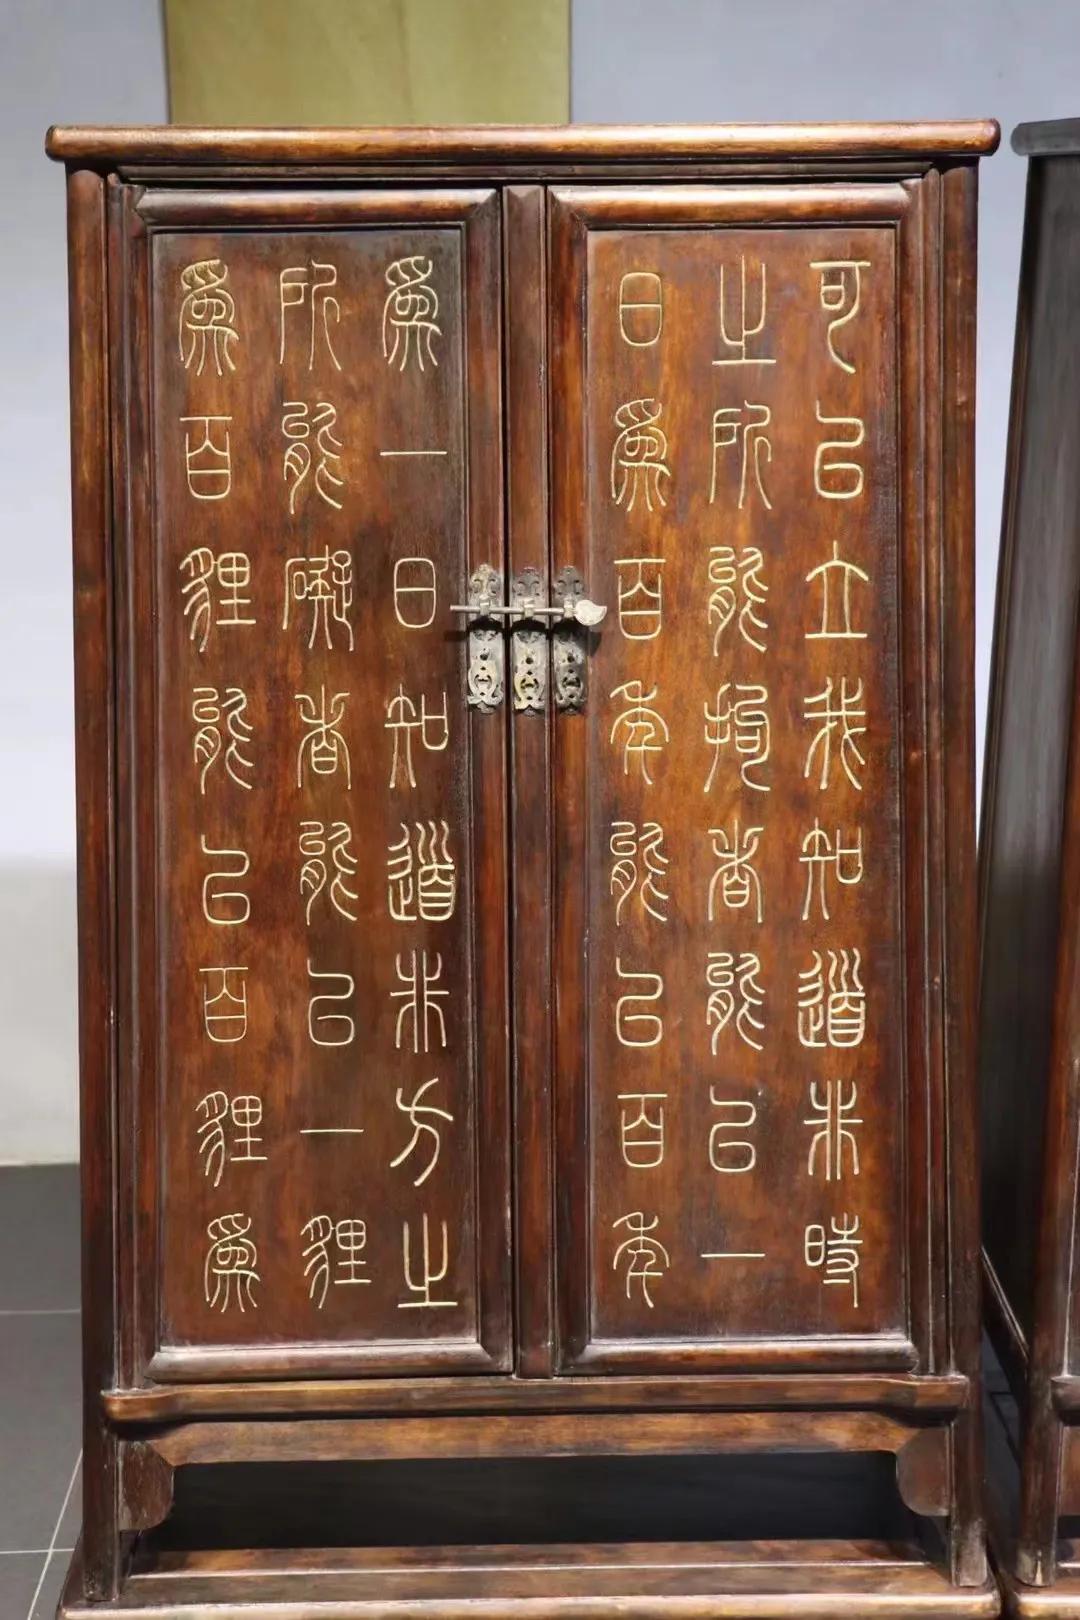 可以立我知道非時
之所能拘者能以一
日為百年能以百年
為一日知道非方之
所能礙者能以一貍
為百貍能以百貍為